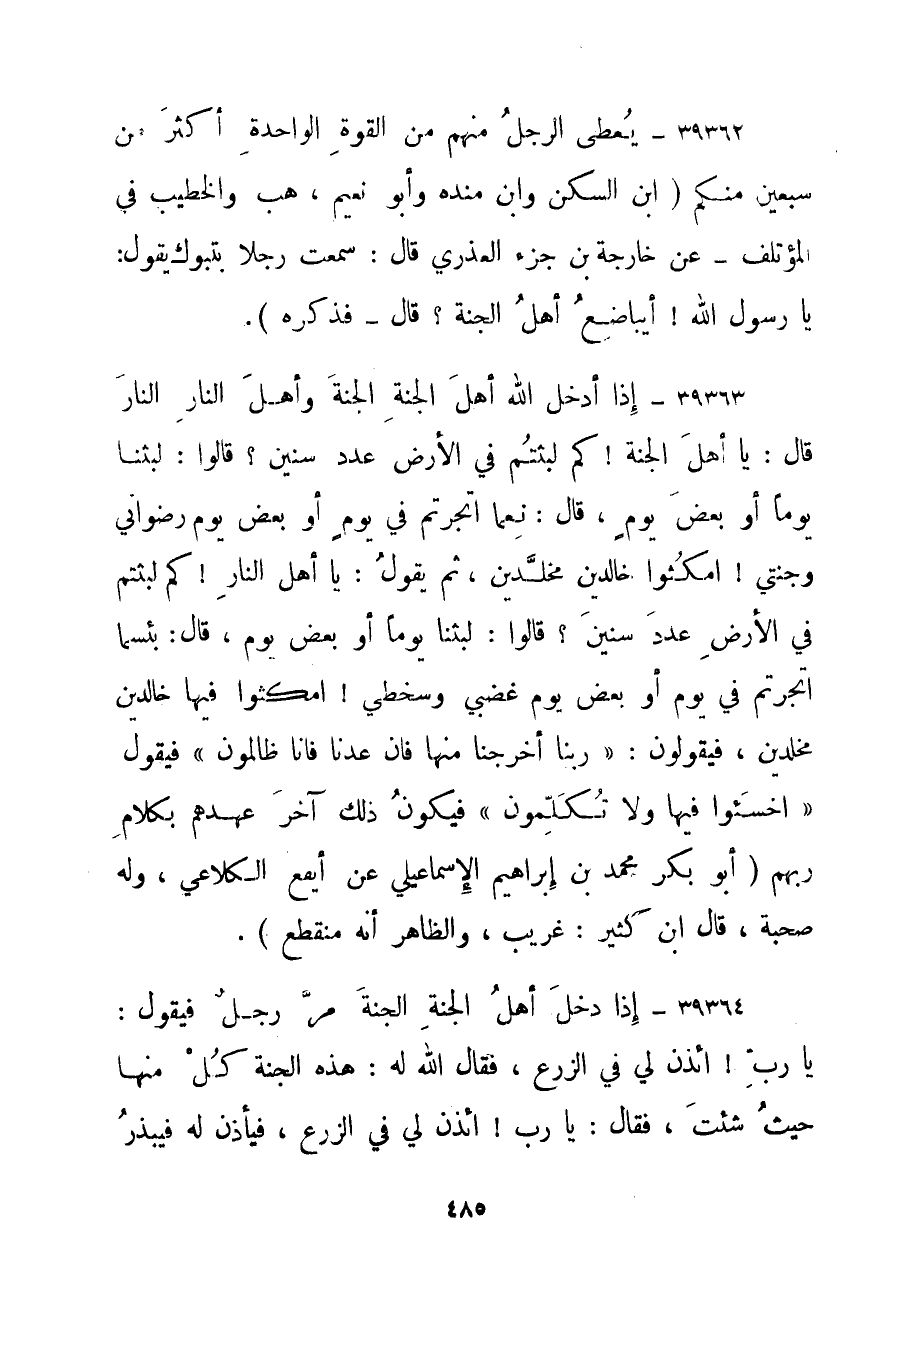 ٣٩٣٦٢ ـ يُعطى الرجلُ منهم من القوةِ الواحدةِ أكثرَ من
سبعين منكم ( ابن السكن وابن منده وأبو نعيم ، هب والخطيب في
المؤتلف ـ عن خارجة بن جزء العذري قال : سمعت رجلا بتبوك يقول:
يا رسول الله ! أيباضعُ أهلُ الجنة ؟ قال ـ فذكره ).
٣٩٣٦٣ ـ إذا أدخل الله أهلَ الجنةِ الجنةَ وأهلَ النارِ النارَ
قال : يا أهلَ الجنة ! كم لبثتُم في الأرض عدد سنين ؟ قالوا : لبثنا
يوماً أو بعضَ يومٍ ، قال : نِعما اتجرتم في يومٍ أو بعض يوم رضواني
وجنتي ! امكُثوا خالدين مخلَّدين ، ثم يقولُ : يا أهل النارِ ! كم لبثتم
في الأرضِ عددَ سنينَ ؟ قالوا : لبثنا يوماً أو بعض يوم ، قال: بئسما
اتجرتم في يوم أو بعض يوم غضبي وسخطي ! امكثوا فيها خالدين
مخلدين ، فيقولون : « ربنا أخرجنا منها فان عدنا فانا ظالمون » فيقول
« اخسَئوا فيها ولا تُكَلِّمون » فيكونُ ذلك آخرَ عهدهم بكلامِ
ربهم ( أبو بكر محمد بن إبراهيم الإسماعيلي عن أيفع الكلاعي ، وله
صحبة ، قال ابن كثير : غريب ، والظاهر أنه منقطع ) .
٣٩٣٦٤ ـ إذا دخلَ أهلُ الجنةِ الجنةَ مرَّ رجلٌ فيقول :
يا ربِّ ! ائذن لي في الزرع ، فقال الله له : هذه الجنة كُلْ منها
حيثُ شئتَ ، فقال : يا رب ! ائذن لي في الزرع ، فيأذن له فيبذرُ
٤٨٥